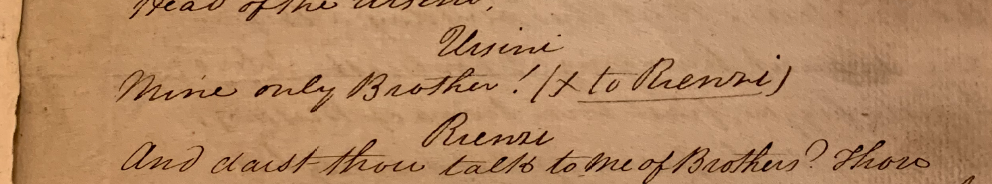 Head of the Ursini.
Ursini
Mine only Brother! (X to Rienzi)
Rienzi
And darst thou talk to me of Brothers? Thou